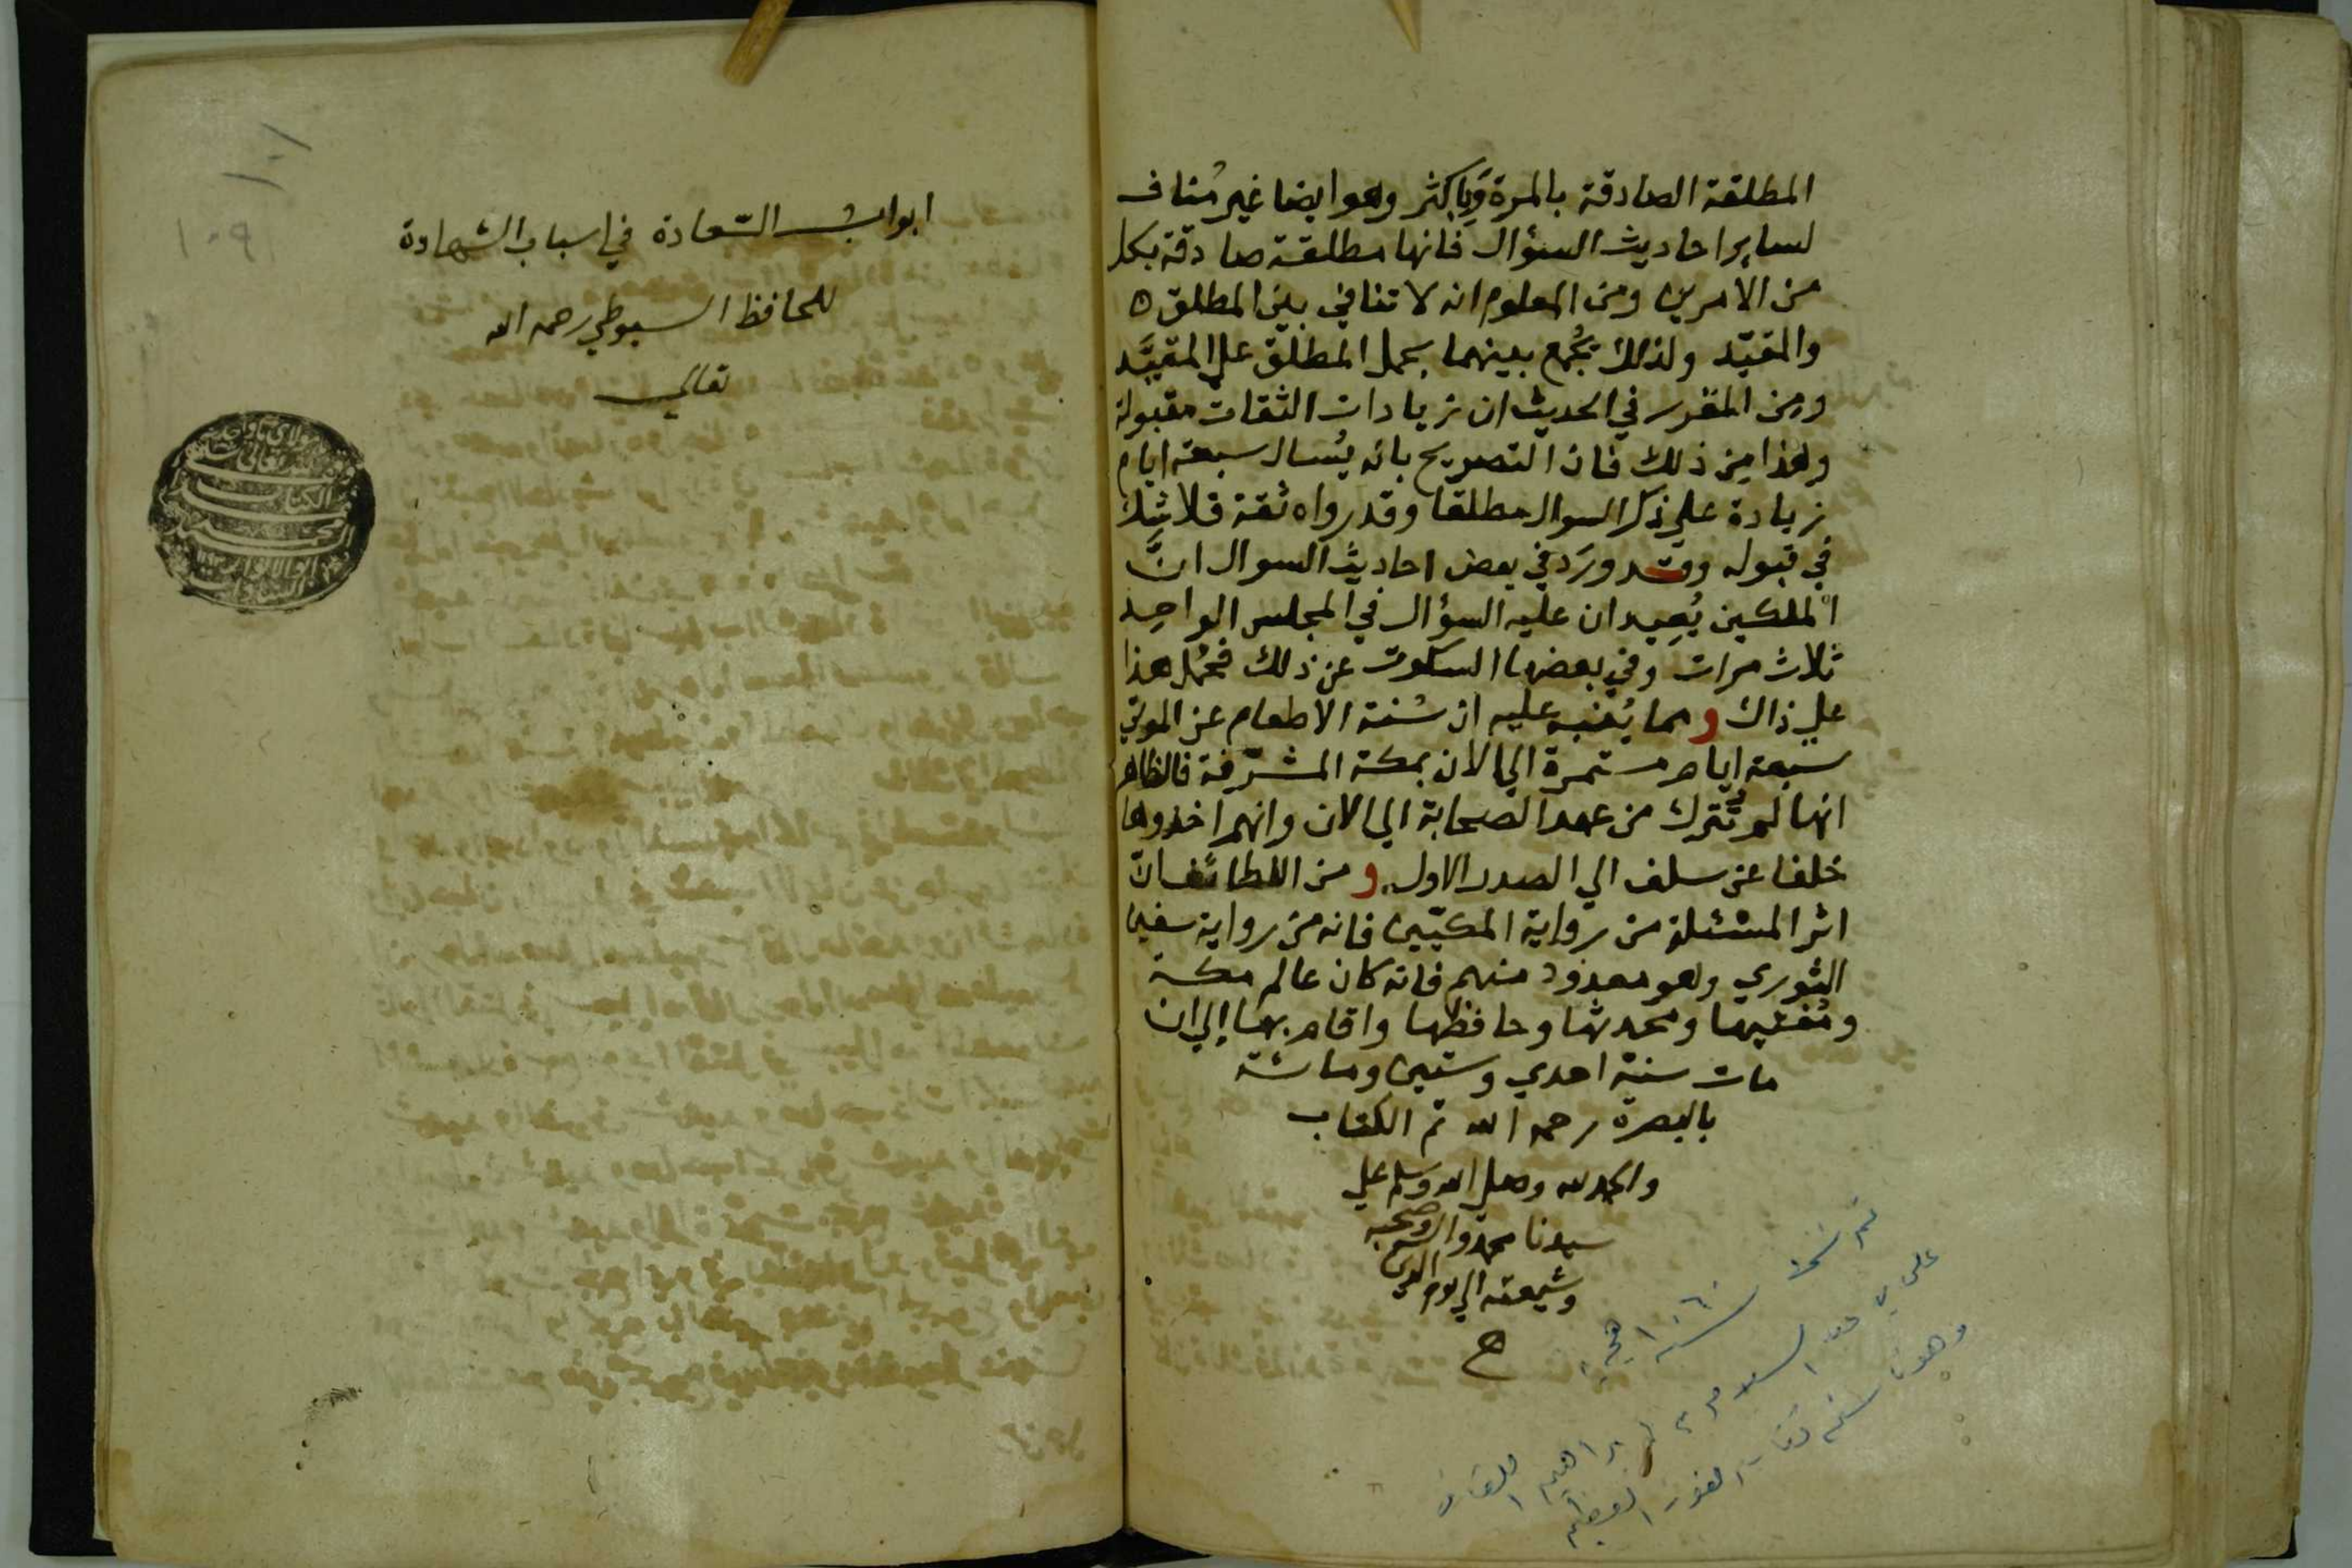 المطلقة الصادقة بالمرة وَبِاكثر وهو ايضا غير مُناف
لساير احاديث السؤال فانها مطلقة صادقة بكل
من الامرين ومن المعلوم انه لا تنافي بين المطلق
والمقيّد ولذلك يُجمع بينهما بحمل المطلق علي المقيَّد
ومِن المقرر في الحديث ان زيادات الثقات مقبولة
وهذا مِن ذلك فان التصريح بانه يُسال سبعة ايام
زيادة علي ذكر السوال مطلقا وقد رواه ثقة فلا شكَّ
في قبوله وقد ورَد في بعض احاديث السوال انَّ
الملكين يُعِيدان عليه السؤال في المجلس الواحِد
ثلاث مرات وفي بعضها السكوت عن ذلك فحُمل هذا
علي ذاك ومما يُنبه عليه ان سُنة الاطعام عن الموتي
سبعة ايام مستمرة الي الان بمكة المشرّفة فالظاهر
انها لم تُترك من عهد الصحابة الي الان وانهم اخذوها
خلفا عن سلف الي الصدر الاول ومن اللطائف انّ
اثر المسئلة من رواية المكيّين فانه من رواية سفين
الثوري وهو معدود منهم فانه كان عالم مكة
ومُفتيها ومحدثها وحافظها واقام بها الي ان
مات سنة احدي وستين ومائة
بالبصرة رحمه الله تم الكتاب
والحمد لله وصلي الله وسلم علي
سيدنا محمد واله وصحبه
وشيعته الي يوم الدين
ح
سنة ١٠٦٠
ابواب السّعادة في اسباب الشهادة
للحافظ السيوطي رحمه الله
تعالي
١٠٩